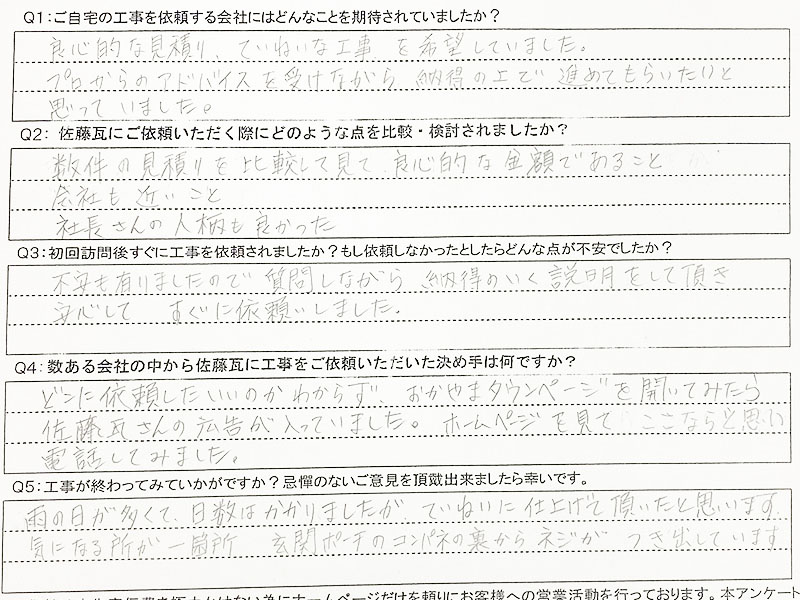 Q1：ご自宅の工事を依頼する会社にはどんなことを期待されていましたか？
良心的な見積り、ていねいな工事 を希望していました。
プロからのアドバイスを受けながら 納得の上で 進めてもらいたいと
思って いました。
Q2： 佐藤瓦にご依頼いただく際にどのような点を比較・検討されましたか？
数件の見積りを比較して見て 良心的な金額であること
会社も近いこと
社長さんの人柄も良かった
Q3：初回訪問後すぐに工事を依頼されましたか？もし依頼しなかったとしたらどんな点が不安でしたか？
不安も有りましたので 質問しながら 納得のいく説明をして頂き
安心して すぐに依頼いしました。
Q4：数ある会社の中から佐藤瓦に工事をご依頼いただいた決め手は何ですか？
どこに依頼したいいのか わからず、おかやまタウンページを開いてみたら
佐藤瓦さんの広告が入っていました。 ホームページを見て ここならと思い
電話してみました。
Q5：工事が終わってみていかがですか？忌憚のないご意見を頂戴出来ましたら幸いです。
雨の日が多くて、日数はかかりましたが ていねいに仕上げて頂いたと思います。
気になる所が 一箇所 玄関ポーチのコンパネの裏からネジが つき出しています
ホームページだけを頼りにお客様への営業活動を行っております。本アンケート